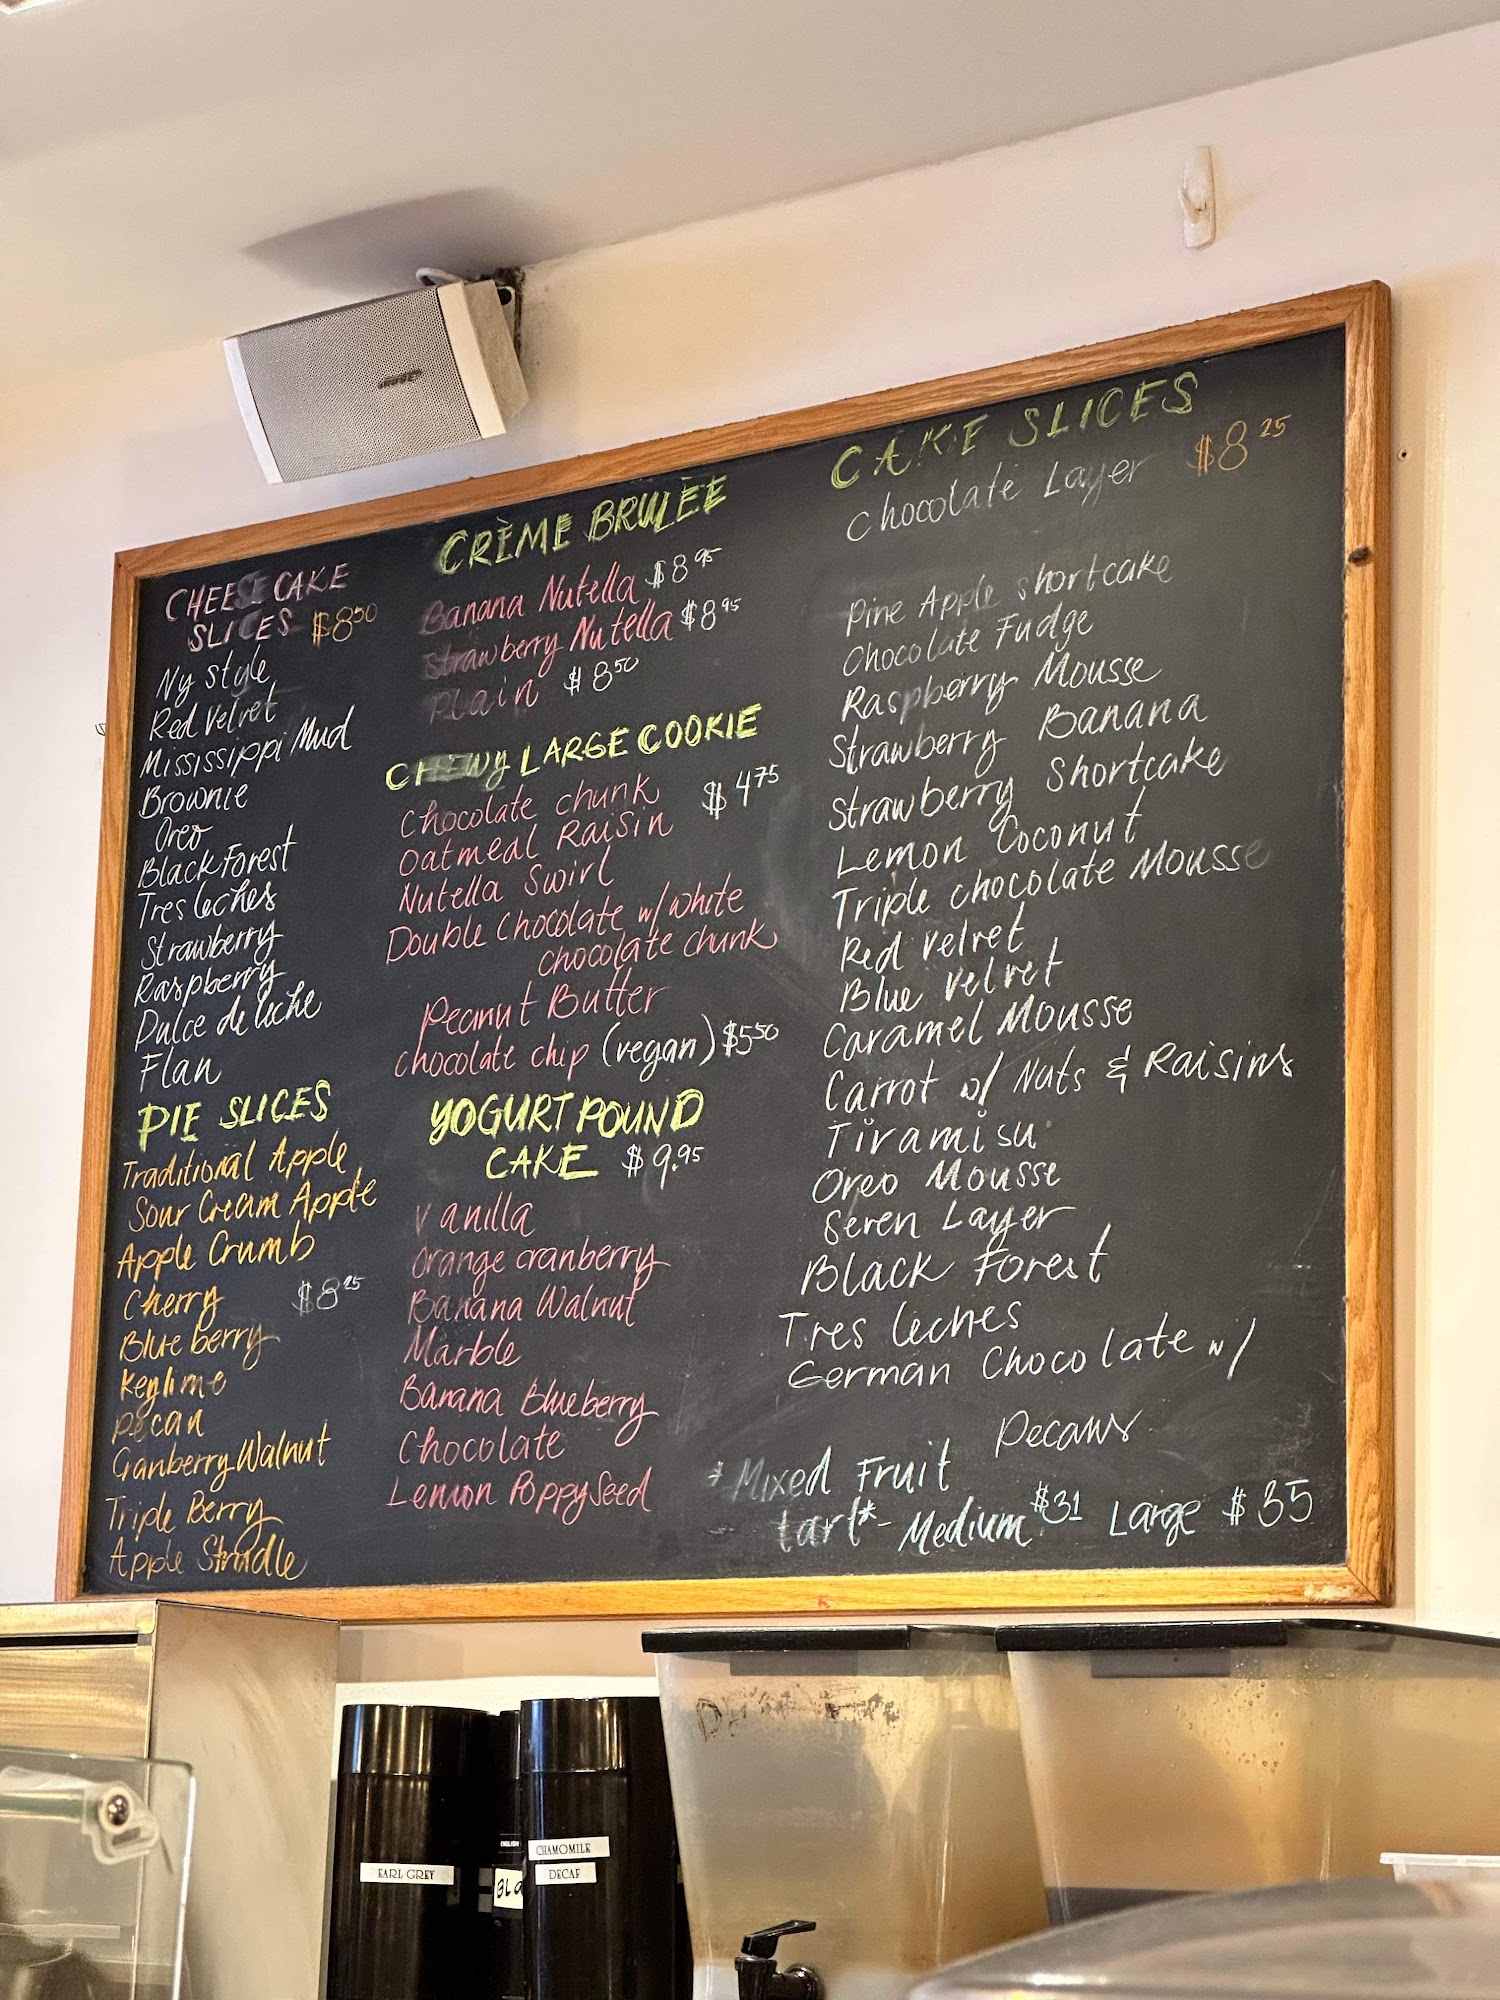 BOSE
CHEESECAKE
SLICES $8.50
Ny style
Red Velvet
Mississippi Mud
Brownie
Oreo
Black Forest
Tres leches
Strawberry
Raspberry
Dulce de leche
Flan
PIE SLICES
Traditional Apple
Sour Cream Apple
Apple Crumb
Cherry $8.25
Blueberry
Keylime
Pecan
Cranberry Walnut
Triple Berry
Apple Strudle
CRÈME BRULÈE
Banana Nutella $8.95
Strawberry Nutella $8.95
Plain $8.50
CHEWY LARGE COOKIE
Chocolate chunk $4.75
Oatmeal Raisin
Nutella Swirl
Double Chocolate w/ White
chocolate chunk
Peanut Butter
Chocolate chip (vegan) $5.50
YOGURT POUND
CAKE $9.95
Vanilla
Orange cranberry
Banana Walnut
Marble
Banana Blueberry
Chocolate
Lemon Poppy Seed
CAKE SLICES
Chocolate Layer $8.25
Pine Apple shortcake
Chocolate Fudge
Raspberry Mousse
Strawberry Banana
Strawberry Shortcake
Lemon Coconut
Triple chocolate Mousse
Red Velvet
Blue Velvet
Caramel Mousse
Carrot w/ Nuts & Raisins
Tiramisu
Oreo Mousse
Seven Layer
Black Forest
Tres leches
German Chocolate w/
Pecans
*Mixed Fruit
tart*- Medium $31 Large $35
EARL GREY
ENGLISH
CHAMOMILE
DECAF